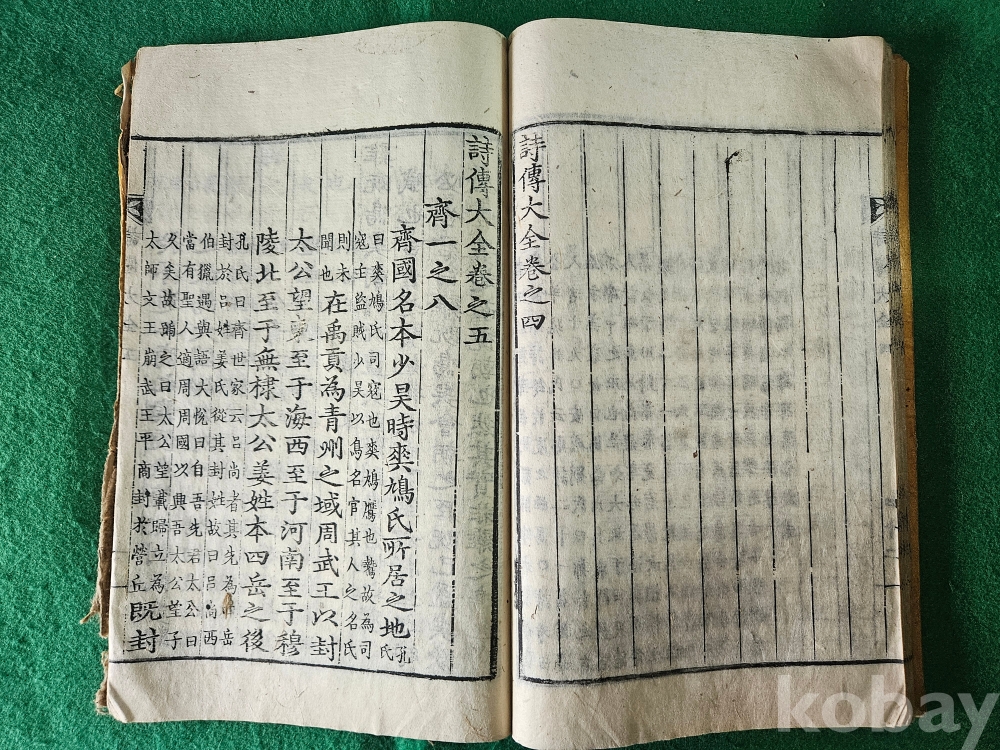 詩傳大全卷之四
詩傳大全卷之五
齊一之八
齊國名本少昊時爽鳩氏所居之地孔氏
曰爽鳩氏司寇也爽鳩鷹也鷙故為司
寇主盜賊少昊以鳥名官其人之名氏
則未聞也在禹貢為青州之域周武王以封
太公望東至于海西至于河南至于穆
陵北至于無棣太公姜姓本四岳之後
孔氏曰齊世家云呂尚者其先為四岳
封於呂姓姜氏從其封姓故曰呂尚西
伯獵遇與語大悅曰自吾先君太公曰
當有聖人適周周國以興吾太公望子
久矣故號之曰太公望載歸立為
太師文王崩武王平商封於營丘既封
kobay